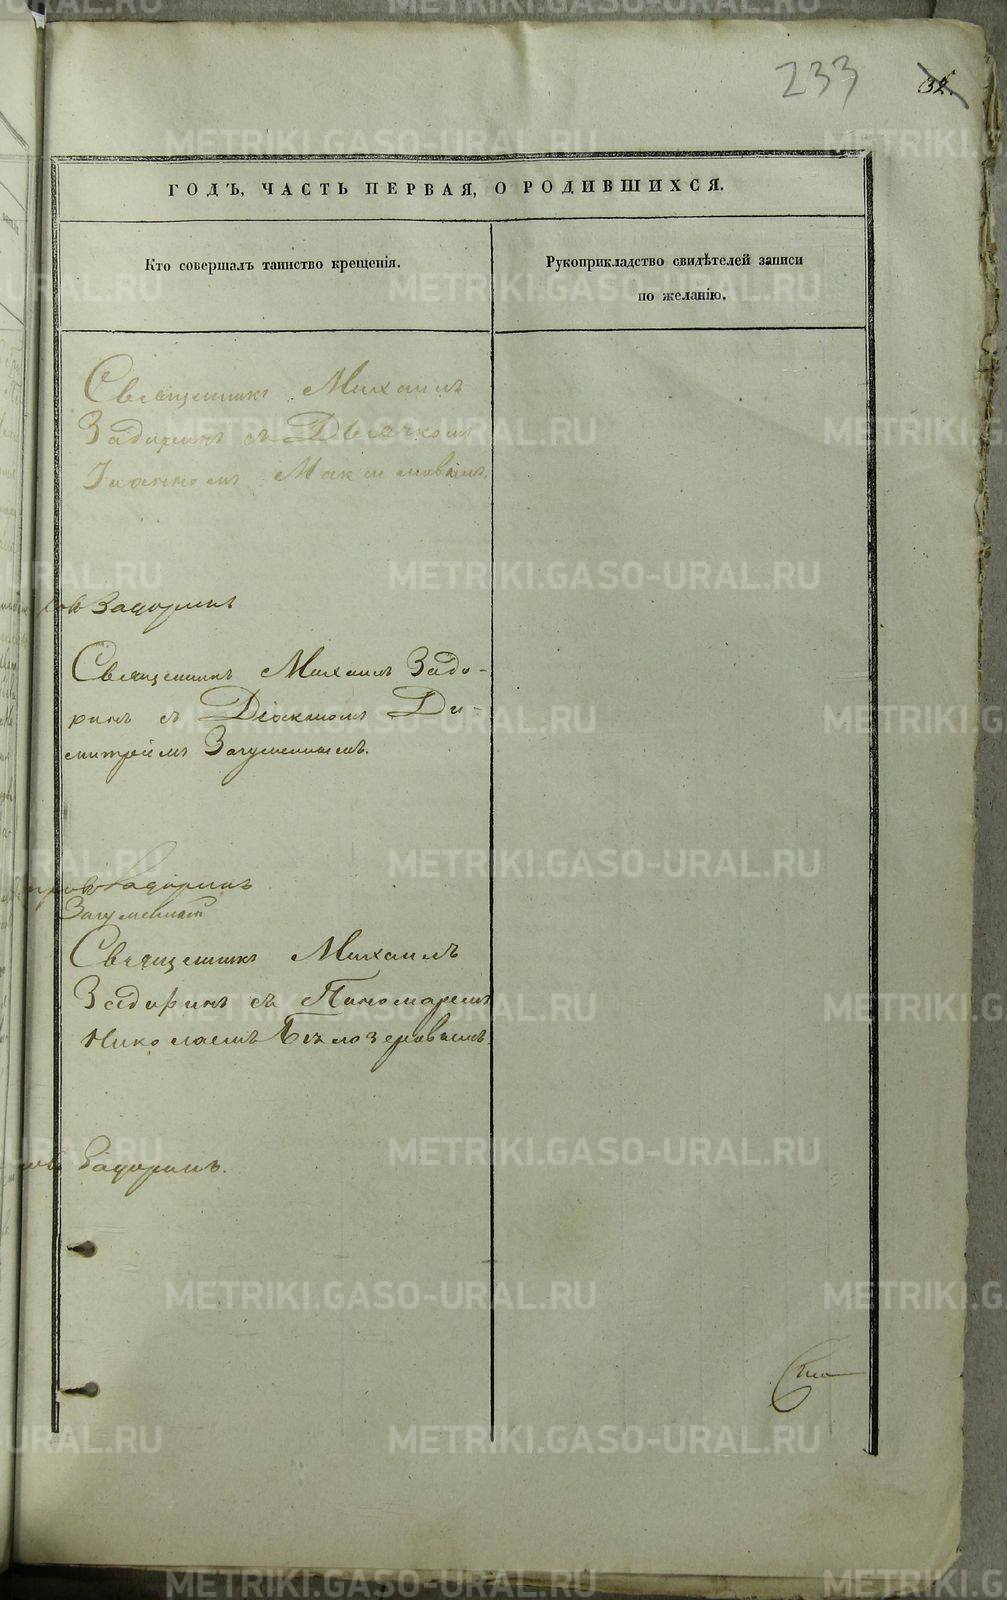 233
32.
ГОДЪ, ЧАСТЬ ПЕРВАЯ, О РОДИВШИХСЯ.
Кто совершалъ таинство крещенія.
Рукоприкладство свидѣтелей записи
по желанію.
Священникъ Михаилъ
Задоринъ съ Дьячкомъ
Іоанномъ Максимовымъ.
Задоринъ
Священникъ Михаилъ Задо-
ринъ съ Діакономъ Ди-
митріемъ Загуменнымъ.
Задоринъ
Загуменный
Священникъ Михаилъ
Задоринъ съ Пономаремъ
Николаемъ Бѣлозеровымъ.
Задоринъ.
METRIKI.GASO-URAL.RU